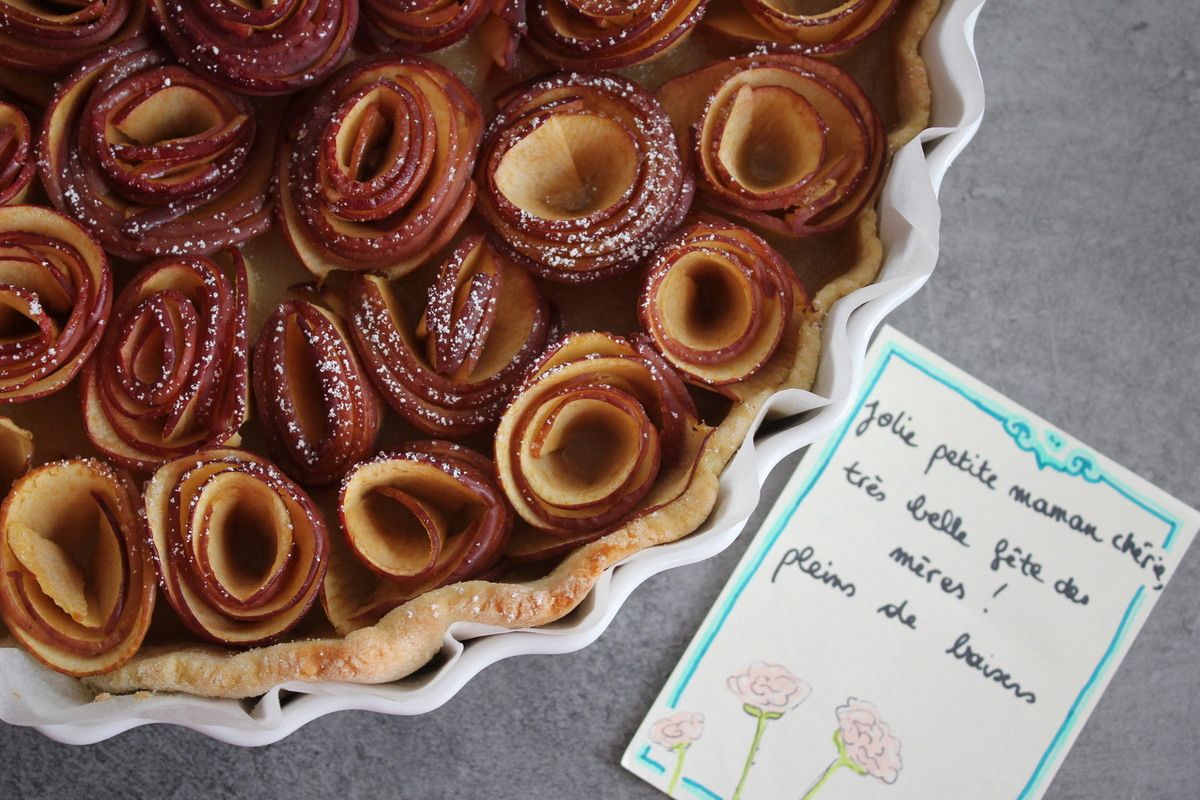 Jolie petite maman chérie,
très belle fête des
mères !
pleins de baisers